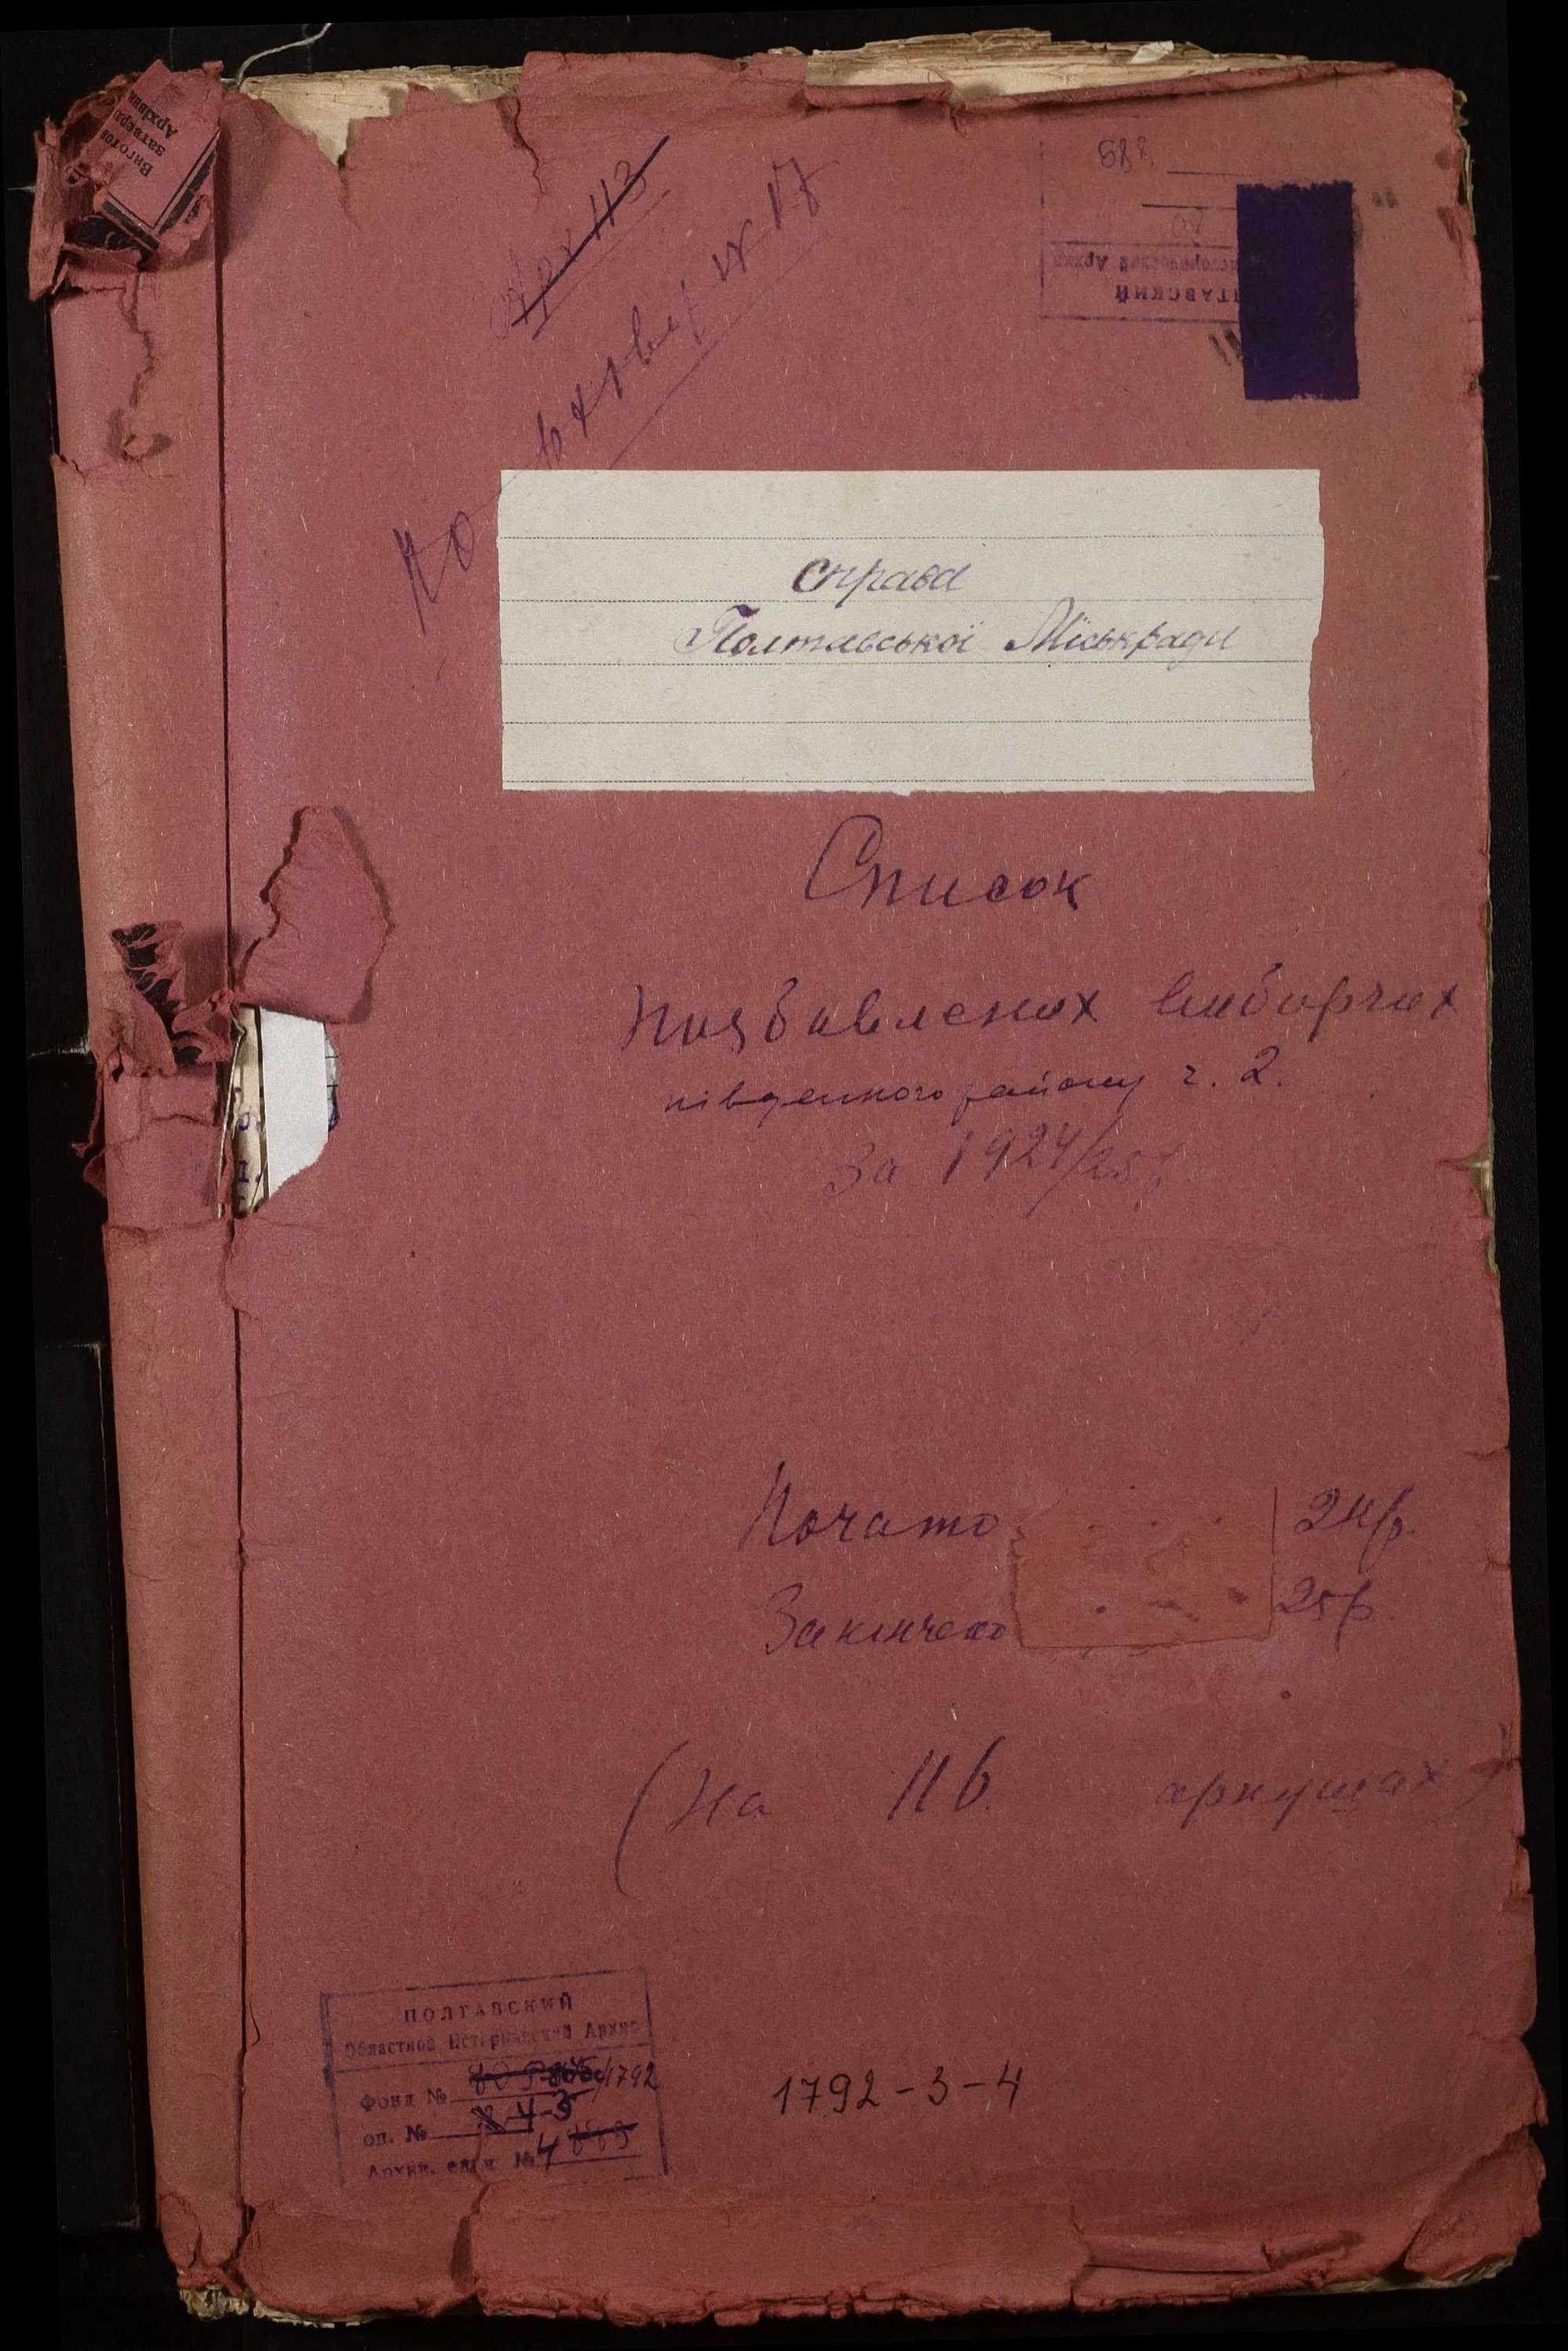 Виготов
затверд
Архівни
Арх 113
588
ПОЛТАВСКИЙ
исторический Архив
Справа
Полтавської Міськради
Список
позбавлених виборчих
південного району ч. 2.
За 1924/25 р.
Почато 24 р.
Закінчено 25 р.
(На 116 аркушах)
ПОЛТАВСКИЙ
Областной Исторический Архив
Фонд № 1792
оп. № 3
Архив. един. № 4
1792-3-4